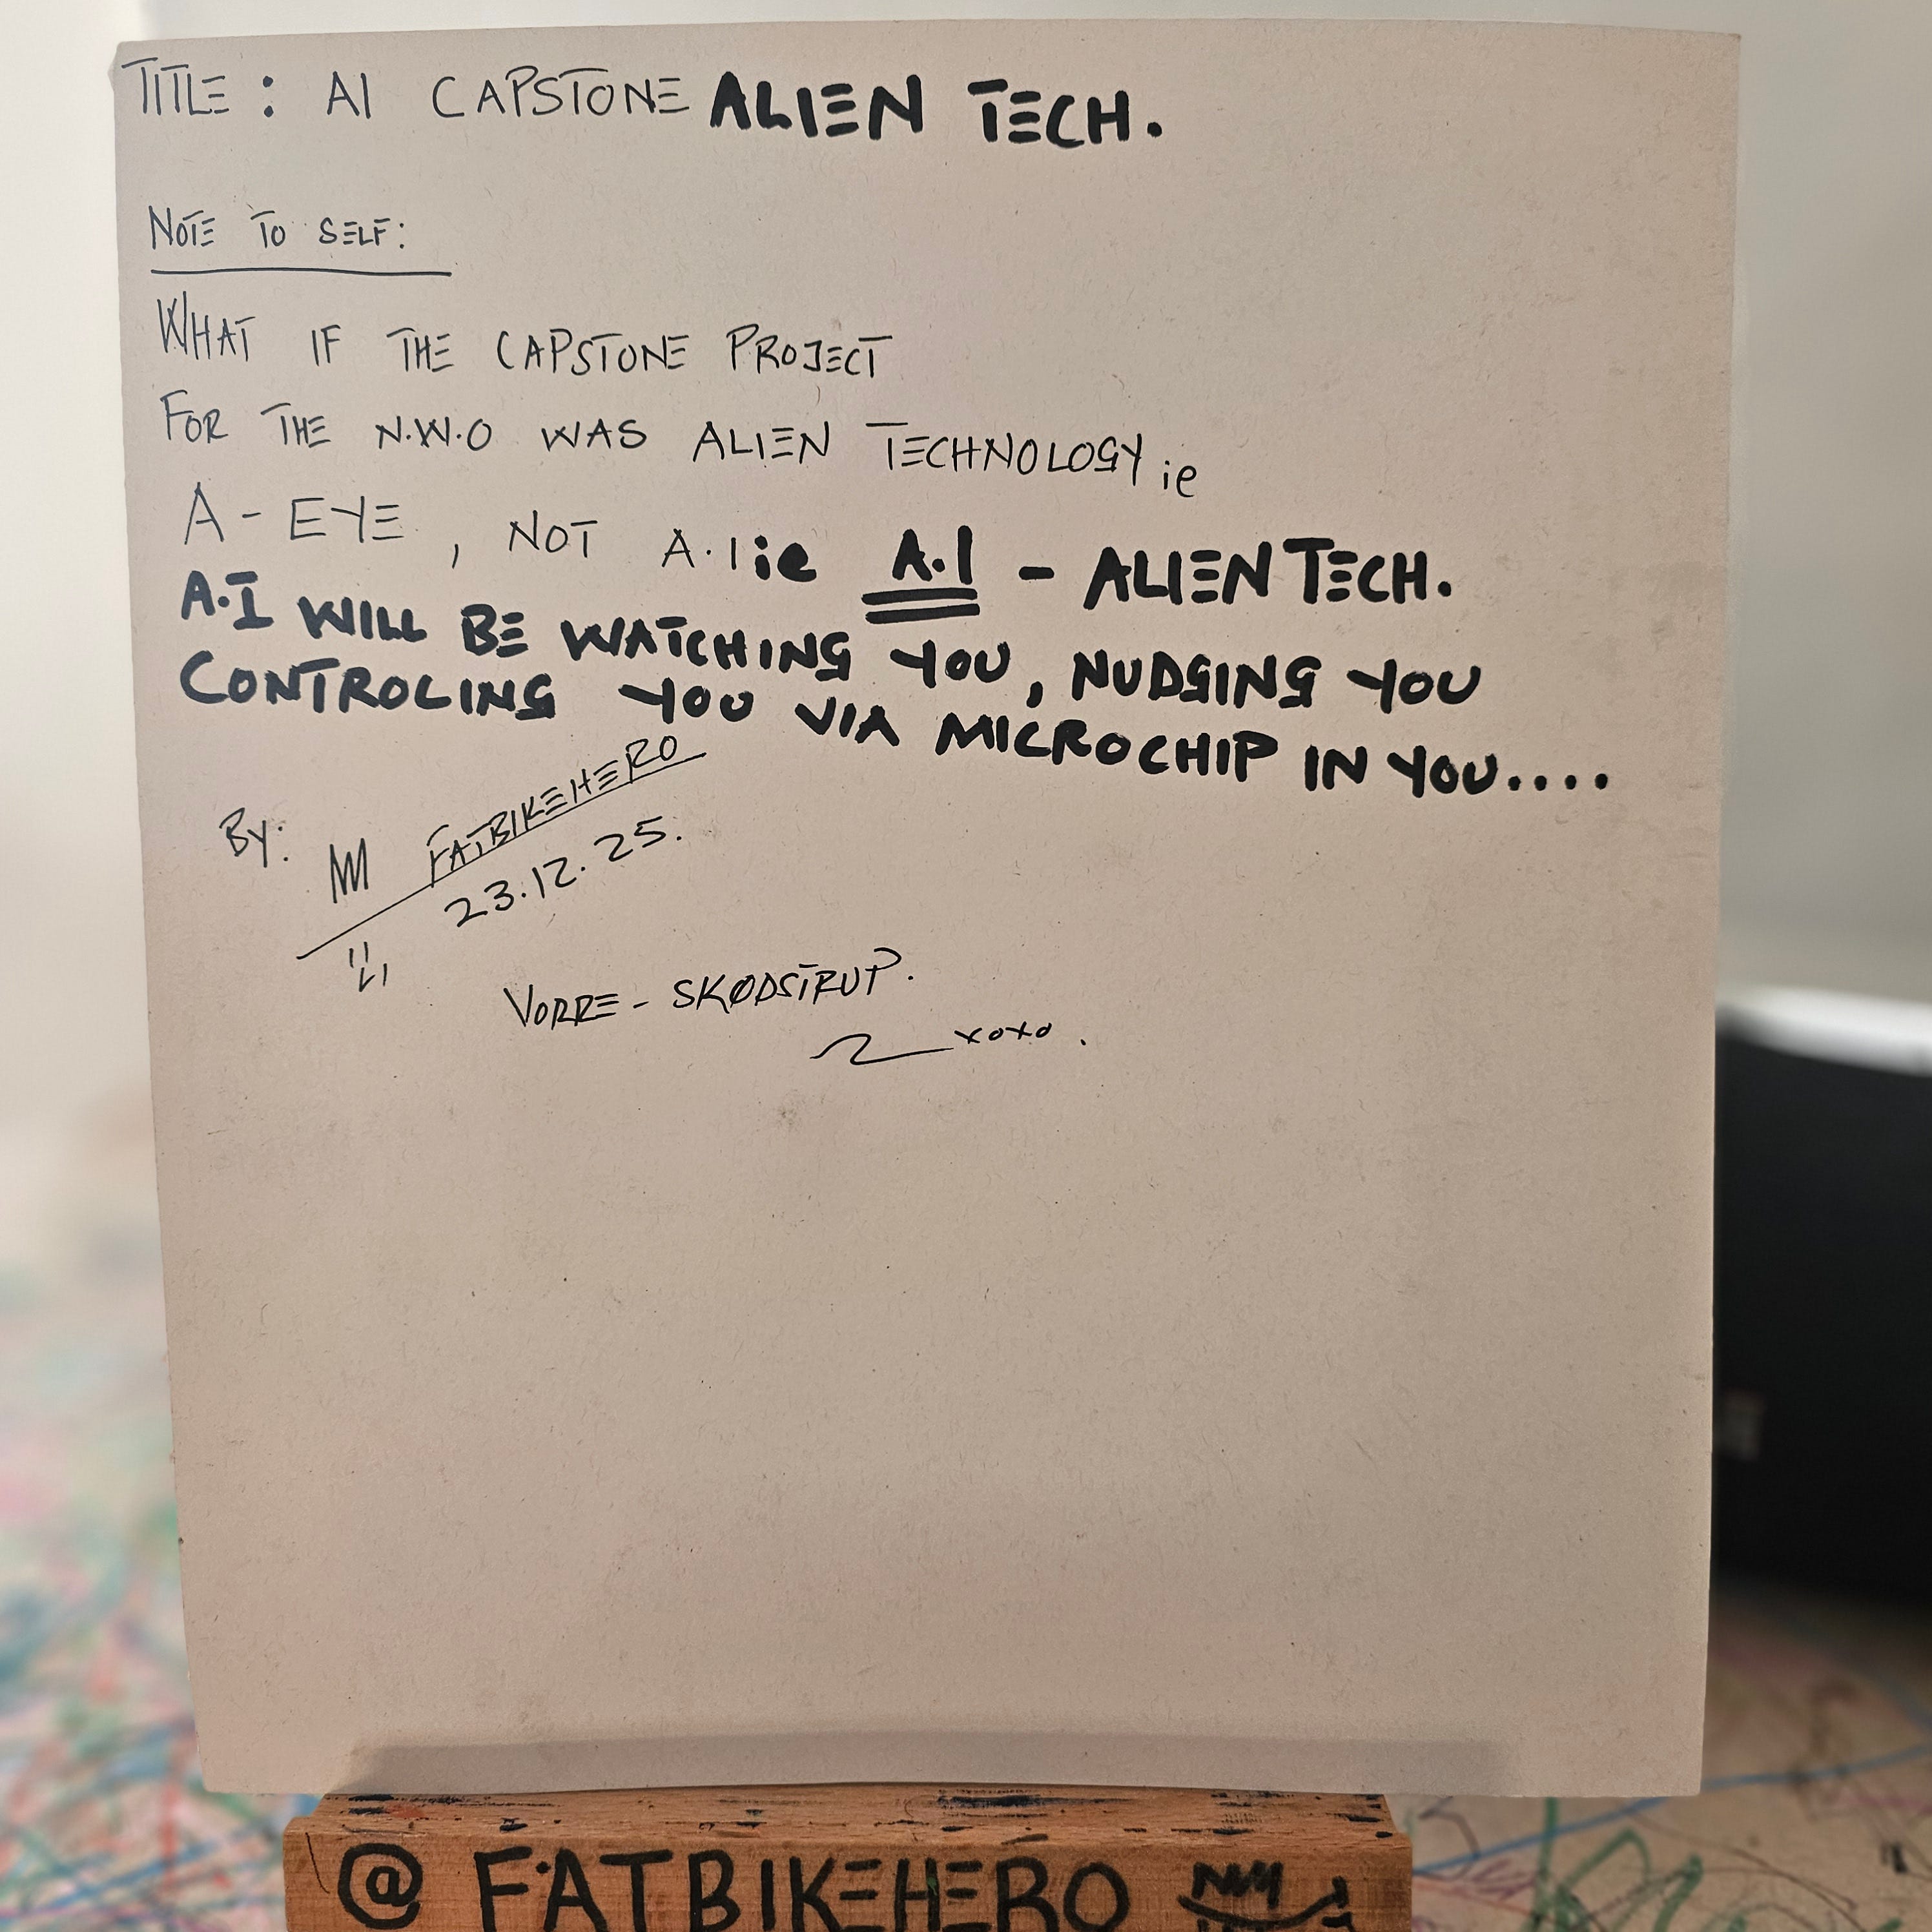 TITLE: AI CAPSTONE ALIEN TECH.
NOTE TO SELF:
WHAT IF THE CAPSTONE PROJECT
FOR THE N.W.O WAS ALIEN TECHNOLOGY ie
A-EYE, NOT A.I ie A.I - ALIEN TECH.
A.I WILL BE WATCHING YOU, NUDGING YOU
CONTROLING YOU VIA MICROCHIP IN YOU....
By: FATBIKEHERO
23.12.25.
VORRE - SKØDSTRUP.
xoxo.
@FATBIKEHERO